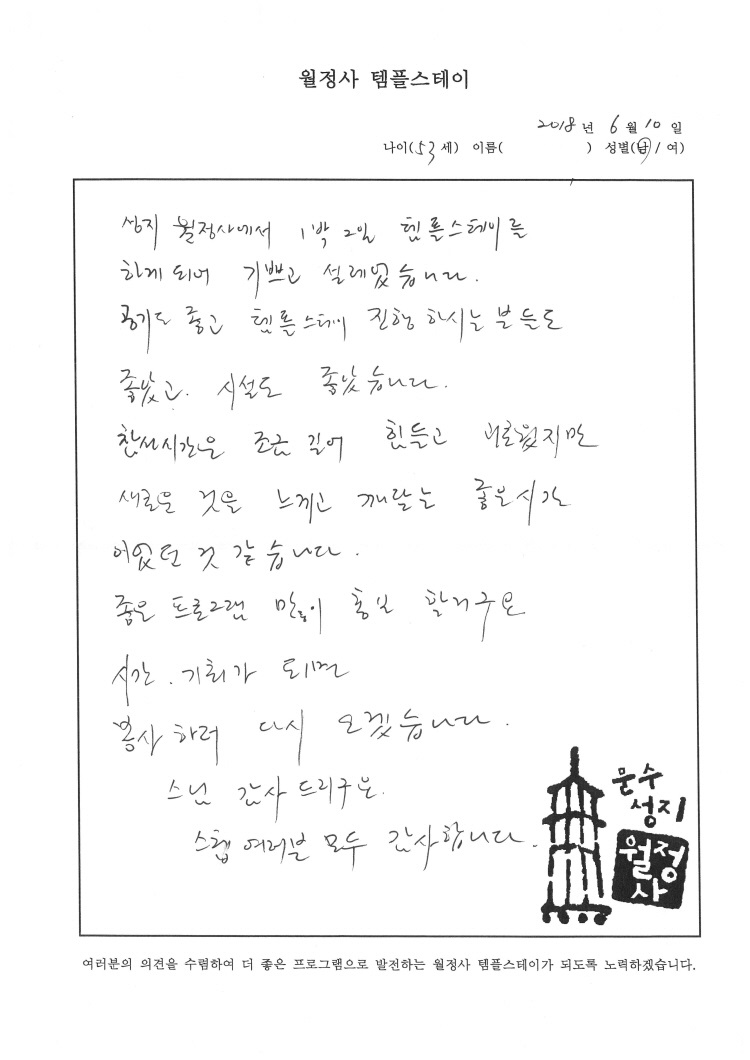 월정사 템플스테이
2018년 6월 10일
나이(53세) 이름( ) 성별(남/여)
성지 월정사에서 1박 2일 템플스테이를
하게 되어 기쁘고 설레였습니다.
공기도 좋고 템플스테이 진행 하시는 분들도
좋았고. 시설도 좋았습니다.
참선시간은 조금 길어 힘들고 괴로웠지만
새로운 것을 느끼고 깨닫는 좋은시간
이였던 것 같습니다.
좋은 프로그램 많이 홍보 할거구요
시간. 기회가 되면
봉사하러 다시 오겠습니다.
스님 감사드리구요.
스텝 여러분 모두 감사합니다.
문수
성지
월정
사
여러분의 의견을 수렴하여 더 좋은 프로그램으로 발전하는 월정사 템플스테이가 되도록 노력하겠습니다.